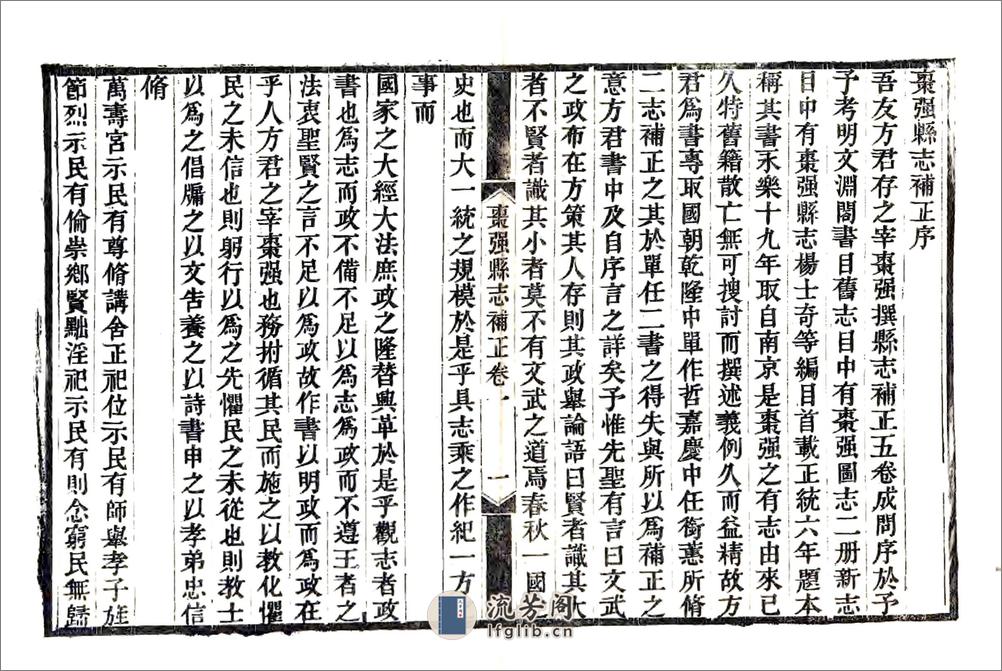 棗强縣志補正序
吾友方君存之宰棗强撰縣志補正五卷成問序於予
予考明文淵閣書目舊志目中有棗强圖志二册新志
目中有棗强縣志楊士奇等編目首載正統六年題本
稱其書永樂十九年取自南京是棗强之有志由來已
久特舊籍散亡無可搜討而撰述義例久而益精故方
君爲書專取國朝乾隆中單作哲嘉慶中任銜蕙所脩
二志補正之其於單任二書之得失與所以爲補正之
意方君書中及自序言之詳矣予惟先聖有言曰文武
之政布在方策其人存則其政舉論語曰賢者識其大
者不賢者識其小者莫不有文武之道焉春秋一國之
棗强縣志補正卷一 一
史也而大一統之規模於是乎具志乘之作紀一方之
事而
國家之大經大法庶政之隆替興革於是乎觀志者政
書也爲志而政不備不足以爲志爲政而不遵王者之
法衷聖賢之言不足以爲政故作書以明政而爲政在
乎人方君之宰棗强也務拊循其民而施之以教化懼
民之未信也則躬行以爲之先懼民之未從也則教士
以爲之倡牖之以文告養之以詩書申之以孝弟忠信
脩
萬壽宮示民有尊脩講舍正祀位示民有師舉孝子旌
節烈示民有倫崇鄉賢黜淫祀示民有則念窮民無歸
流芳阁
lfglib.cn